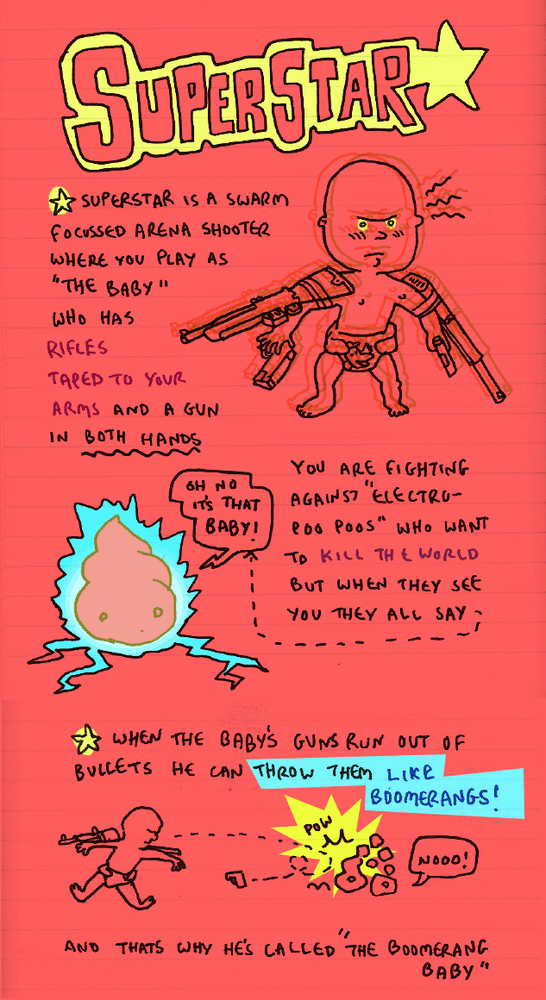 SUPERSTAR
SUPERSTAR IS A SWARM
FOCUSSED ARENA SHOOTER
WHERE YOU PLAY AS
"THE BABY"
WHO HAS
RIFLES
TAPED TO YOUR
ARMS AND A GUN
IN BOTH HANDS
OH NO
IT'S THAT
BABY!
YOU ARE FIGHTING
AGAINST "ELECTRO-
POO POOS" WHO WANT
TO KILL THE WORLD
BUT WHEN THEY SEE
YOU THEY ALL SAY
WHEN THE BABY'S GUNS RUN OUT OF
BULLETS HE CAN THROW THEM LIKE
BOOMERANGS!
POW
NOOO!
AND THATS WHY HE'S CALLED "THE BOOMERANG
BABY"